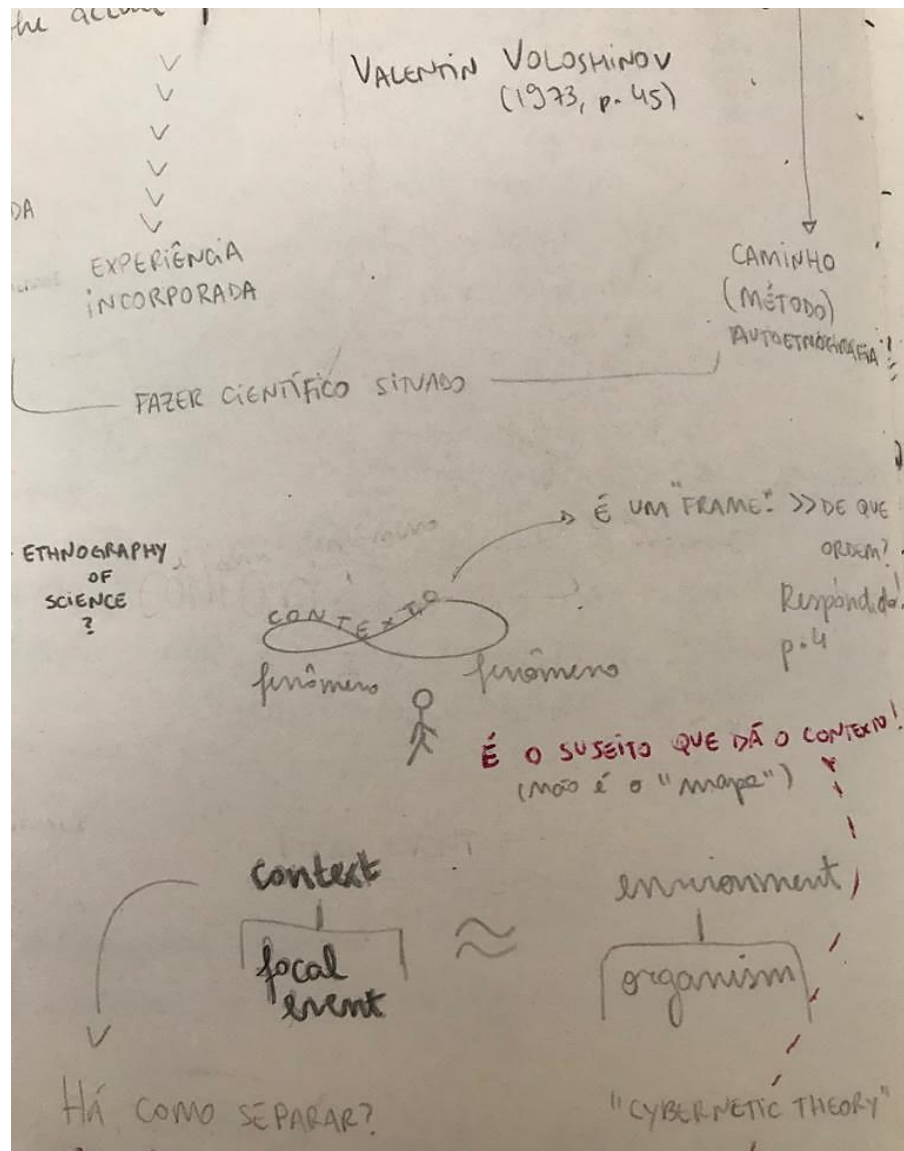 the
VALENTIN VOLOSHINOV
(1973, p. 45)
DA
EXPERIÊNCIA
INCORPORADA
CAMINHO
(MÉTODO)
AUTOETNOGRAFIA!
FAZER CIENTÍFICO SITUADO
É UM "FRAME". >> DE QUE
ORDEM?
Respondido!
p. 4
ETHNOGRAPHY
OF
SCIENCE
?
CONTEXTO
fenômeno
fenômeno
É O SUJEITO QUE DÁ O CONTEXTO!
(não é o "mapa")
context
focal
event
≈
environment
organism
HÁ COMO SEPARAR?
"CYBERNETIC THEORY"